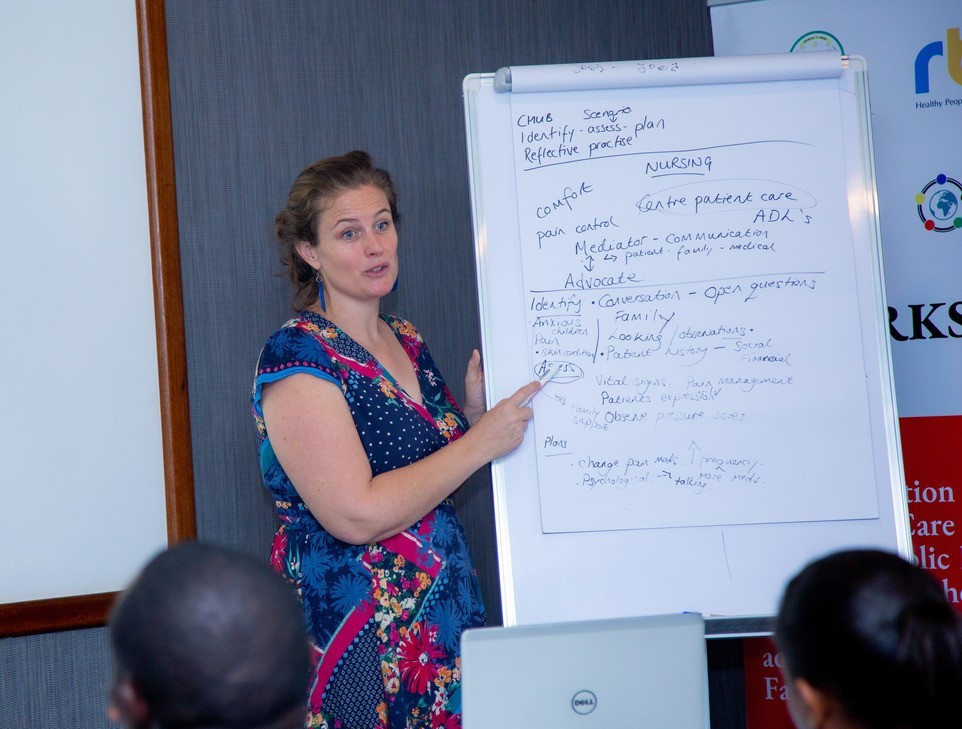 CHUB Scenario
Identify - assess - plan
Reflective practise
NURSING
Comfort
Centre patient care
ADL's
pain control
Mediator - Communication
patient - family - medical
Advocate
Identify • Conversation - Open questions
Anxious
children
Family
Pain
Looking / observations •
• Skin condition
• Patient history - Social
Financial
Assess
Vital signs Pain management
Patients expression
Family
support
Observe pressure sores.
Plans
• change pain meds. ↑ frequency.
more meds.
• Psychological → talking.
Healthy Peop
RKS
tion
Care
blic
ac
Fa
DELL